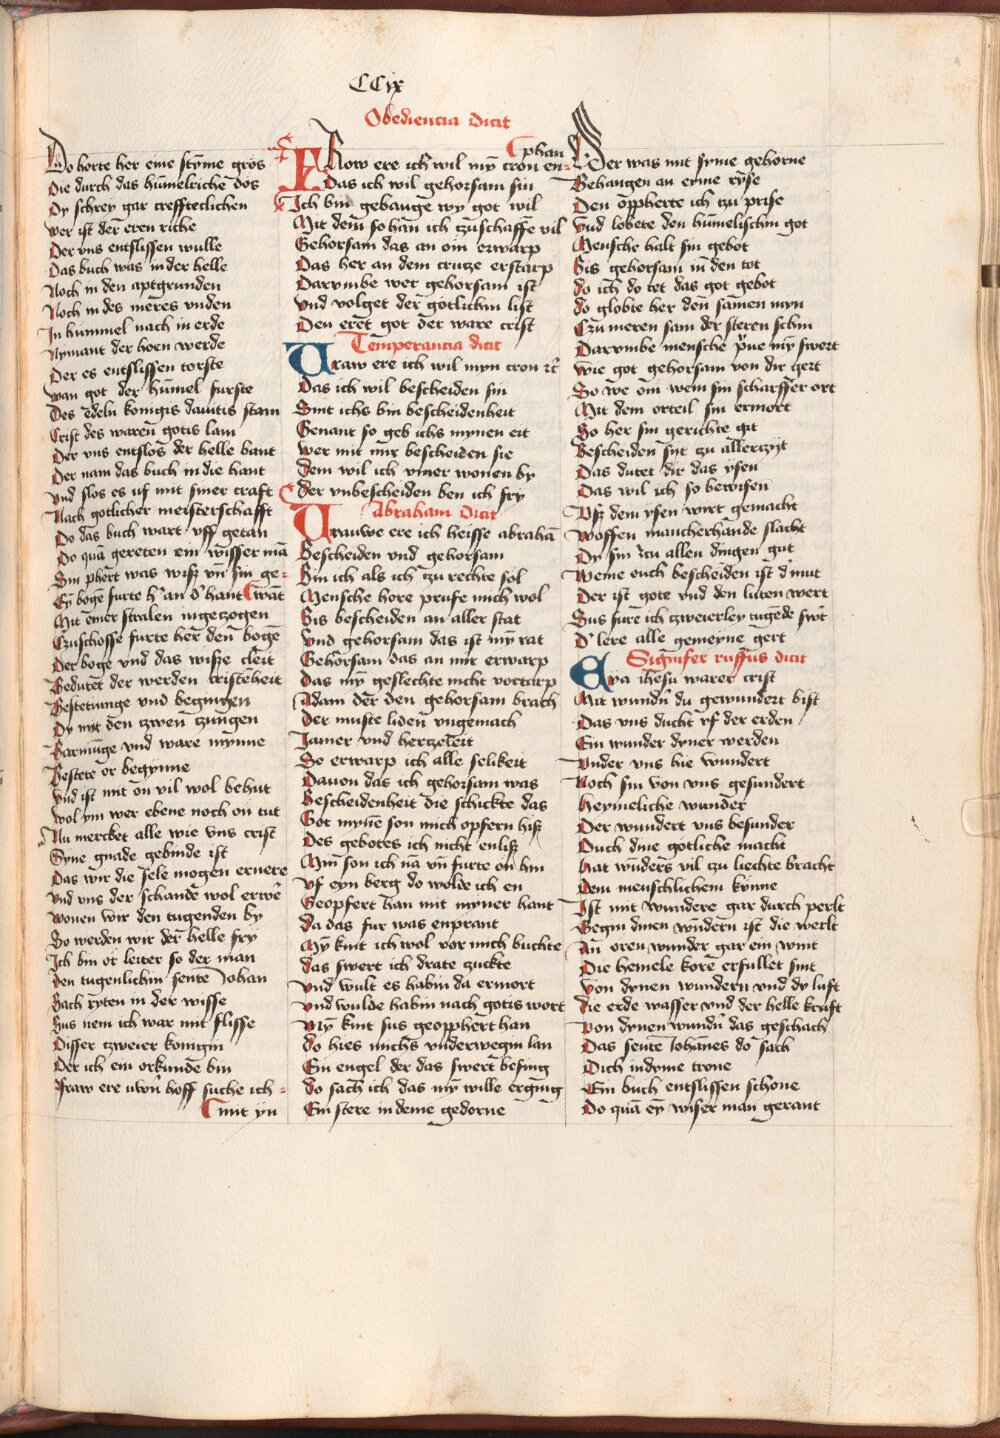 CCix
Do horte her eine styme gros
Die durch das humelriche dos
Dy schrey gar treffteclichen
wer ist der eren riche
Der vns entslissen wulle
Das buch was in der helle
Noch in den aptgrunden
Noch in des meres vnden
In hummel nach in erde
Nymant der hoen werde
Der es entslissen torste
wan got der humel furste
Des edeln konigis dauitis stam
Crist des waren gotis lam
Der vns entslos der helle bant
Der nam das buch in die hant
vnd slos es uf mit siner craft
Nach gotlicher meisterschafft
Do das buch wart uff getan
Do quā gereten ein wisser mā
Sin phert was wisz vn̄ sin ge-
wāt
Ey boge furte h' an d' hant
Mit einer stralen ingetzogen
Czuschosse furte her den bogē
Der boge vnd das wisze cleit
Bedutet der werden cristēheit
Bestetunge vnd begingen
Dy mit den zwen zungen
Barmūge vnd ware mynne
Bestete er begynne
vnd ist mit on vil wol behut
wol ym wer ebene noch on tut
Nu mercket alle wie vns crist
Syne gnade gebinde ist
Das wir die sele mogen ernere
vnd vns der schande wol erwē
wonen wir den tugenden by
So werden wir der helle fry
Ich bin er leiter so der man
Den tugenlichin sente Johan
Sach ryten in der wisse
Sus nem ich war mit flisse
Disser zweier konigin
Der ich ein orkunde bin
Fraw ere uwn̄ hoff suche ich-
mit yn
Obediencia dicit
Frow ere ich wil myn cron en-
phan
Das ich wil gehorsam sin
Ich bin gebauge wy got wil
Mit dem so han ich czuschaffe vil
Gehorsam das an om erwarp
Das her an dem crutze erstarp
Darvmbe wer gehorsam ist
vnd volget der gotlichin list
Den eret got der ware crist
Temperancia dicit
Vraw ere ich wil myn cron rc̄
Das ich wil bescheiden sin
Sint ichs bin bescheidenheit
Genant so geb ichs mynen eit
wer mit mir bescheiden sie
Dem wil ich vmer wonen by
der vnbescheiden ben ich fry
Abraham dicit
Vrauwe ere ich heisse abrahā
Bescheiden vnd gehorsam
Bin ich als ich zu rechte sol
Mensche hore prufe mich wol
Bis bescheiden an aller stat
vnd gehorsam das ist my rat
Gehorsam das an mir erwarp
das my geslechte nicht vortarp
Adam der den gehorsam brach
der muste liden vngemach
Jamer vnd hertzeleit
So erwarp ich alle selikeit
Dauon das ich gehorsam was
Bescheidenheit die schickte das
Got myne son mich opfern hisz
Des gebotes ich nicht enlisz
Min son ich nā vn̄ furte on hin
vf eyn berg do wolde ich en
Geopfert han mit myner hant
Da das fur was enprant
My kint ich wol vor mich buchte
das swert ich drate zuckte
vnd wult es habin da ermort
vnd wulde habin nach gotis wort
My kint sus geopphert han
do hies michs vnderwegin lan
Ein engel der das swert befing
do sach ich das my wille erging
Ein stere in deme gedorne
Der was mit syme gehorne
Behangen an eyme ryse
Den oppherte ich tzu prise
vnd lobete den humelischin got
Mensche halt sin gebot
Bis gehorsam in den tot
do ich do tet das got gebot
do globte her den samen myn
Czu meren sam der steren schin
Darvmbe mensche prue my swert
wie got gehorsam von dir gert
So we om wem sin scharffer ort
Mit dem orteil sin ermort
So her sin gerichte git
Bescheiden sint zu allerzyt
Das dutet dir das ysen
Das wil ich so bewisen
Usz dem ysen wirt gemacht
woffen mancherhande slacht
Dy sin tzu allen dingen gut
Weme ouch bescheiden ist d' mut
Der ist gote vnd den luten wert
Sus fure ich zweierley tugede swt
D' lere alle gemeyne gert
Signifer ruffus dicit
Eya ihesu warer crist
Mit wundn̄ du gewundert bist
Das vns ducht vf der erden
Ein wunder dyner werden
Vnder vns hie wundert
Noch sin von vns gesundert
heymeliche wunder
Der wundert vns besunder
Duch dine gotliche macht
hat wūders vil zu liechte bracht
dem menschlichem kōnne
Ist mit wundere gar durch perlt
Begin dinen wūdern ist die werlt
An oren wunder gar ein wint
Die hemele kore erfullet sint
von dynen wundern vnd dy luft
die erde wasser vnd der helle kruft
von dynen wundn̄ das geschach
Das sente Johānes do sach
Dich in dyme trone
Ein buch entslissen schone
Do quā ey wiser man gerant